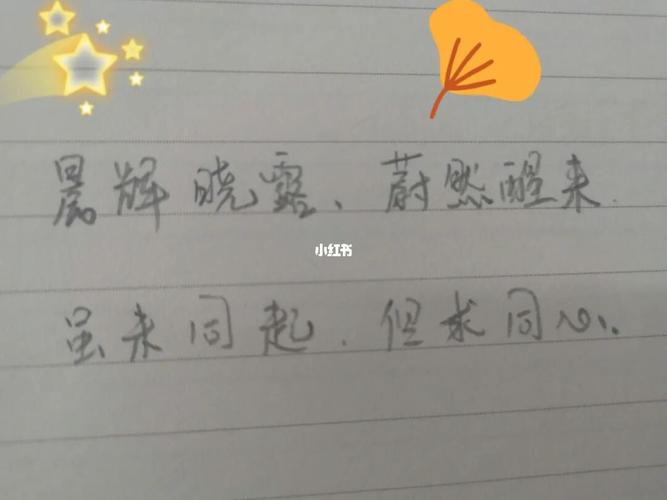 晨辉晓露、蔚然醒来.
小红书
虽未同起.但求同心.